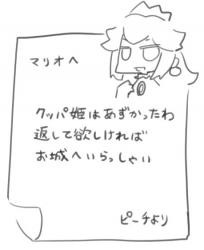 マリオへ
クッパ姫はあずかったわ
返して欲しければ
お城へいらっしゃい
ピーチより